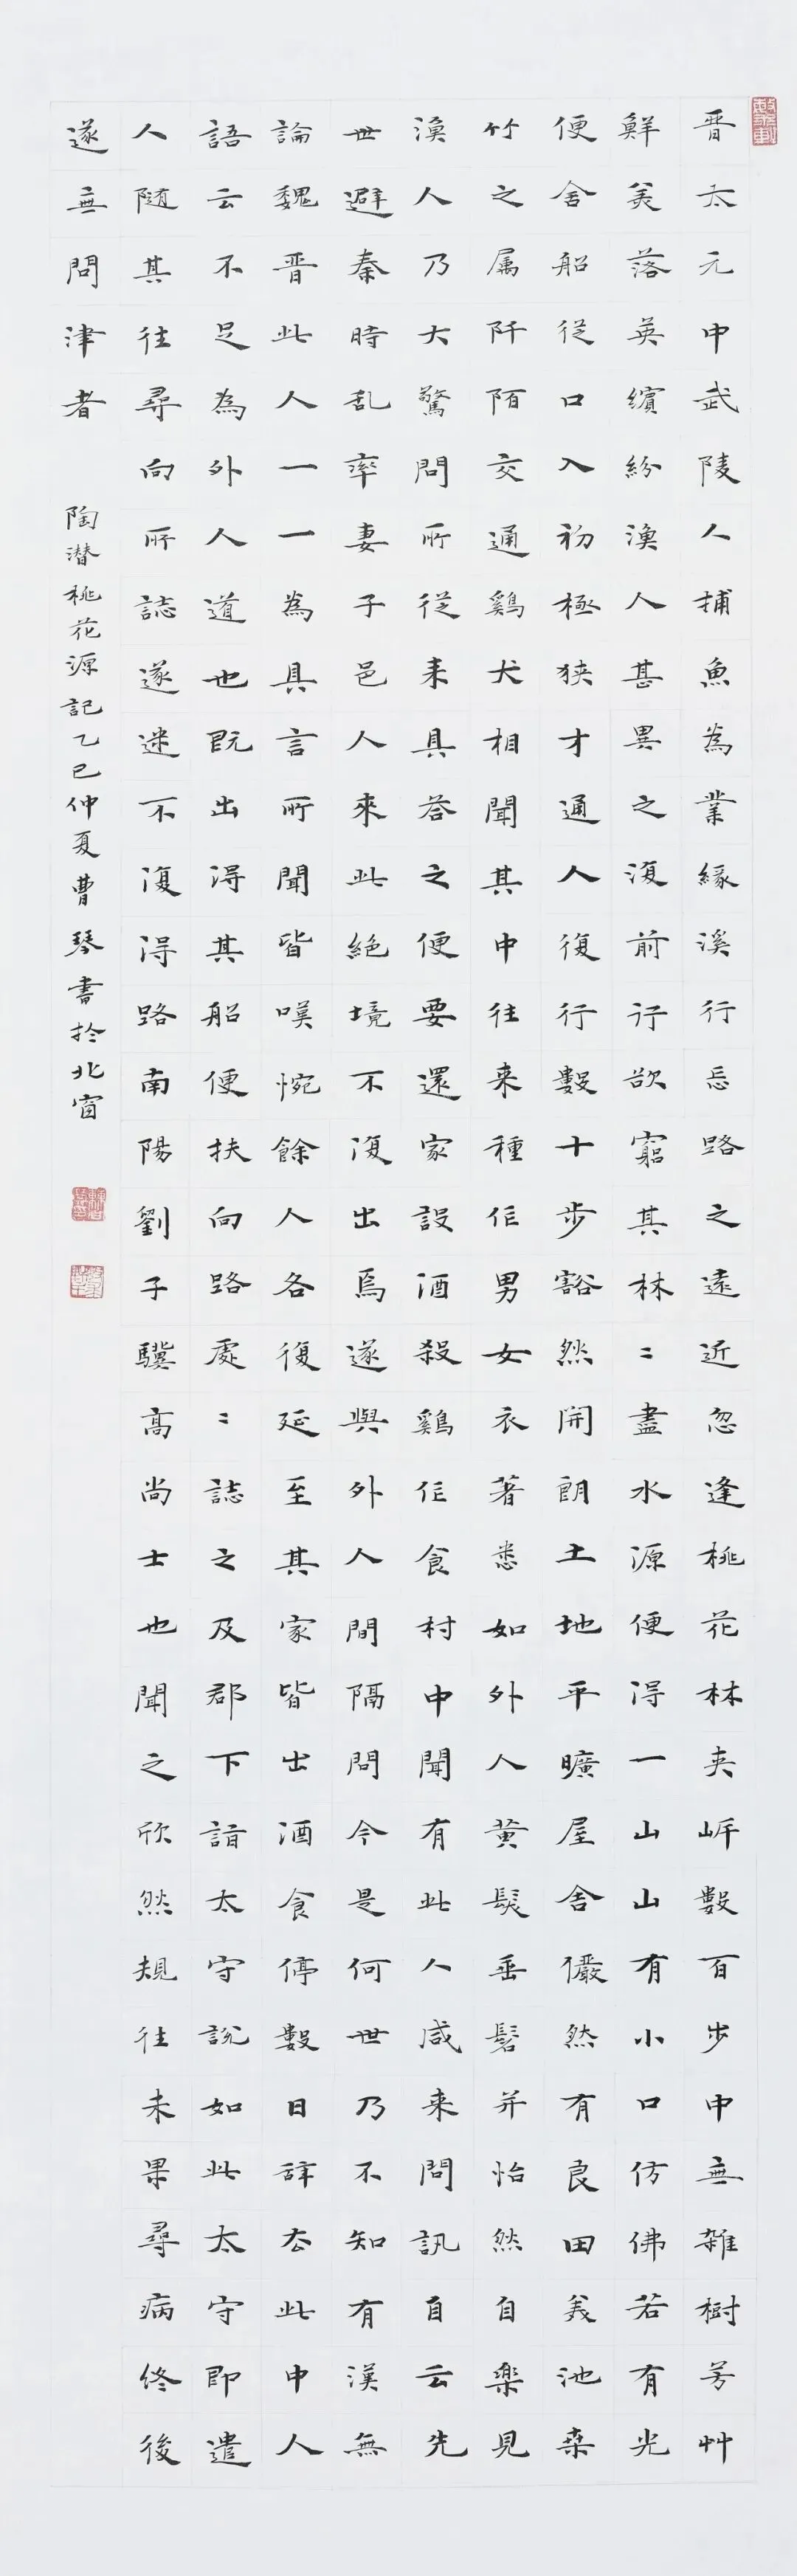 晋太元中武陵人捕魚為業緣溪行忘路之遠近忽逢桃花林夹岍數百步中無雜樹芳艸
鮮美落英繽紛漁人甚異之復前行欲窮其林〻盡水源便得一山山有小口仿佛若有光
便舍船從口入初極狭才通人復行數十步豁然開朗土地平曠屋舍儼然有良田美池桑
竹之属阡陌交通鷄犬相聞其中往来種作男女衣著悉如外人黄髮垂髫并怡然自樂見
漁人乃大驚問所從来具答之便要還家設酒殺鷄作食村中聞有此人咸来問訊自云先
世避秦時乱率妻子邑人來此絶境不復出焉遂與外人間隔問今是何世乃不知有漢無
論魏晋此人一一為具言所聞皆嘆惋餘人各復延至其家皆出酒食停數日辞去此中人
語云不足為外人道也既出得其船便扶向路處〻誌之及郡下詣太守說如此太守即遣
人隨其往尋向所誌遂迷不復得路南陽劉子驥高尚士也聞之欣然規往未果尋病終後
遂無問津者
陶潜桃花源記乙巳仲夏曹琴書於北窗